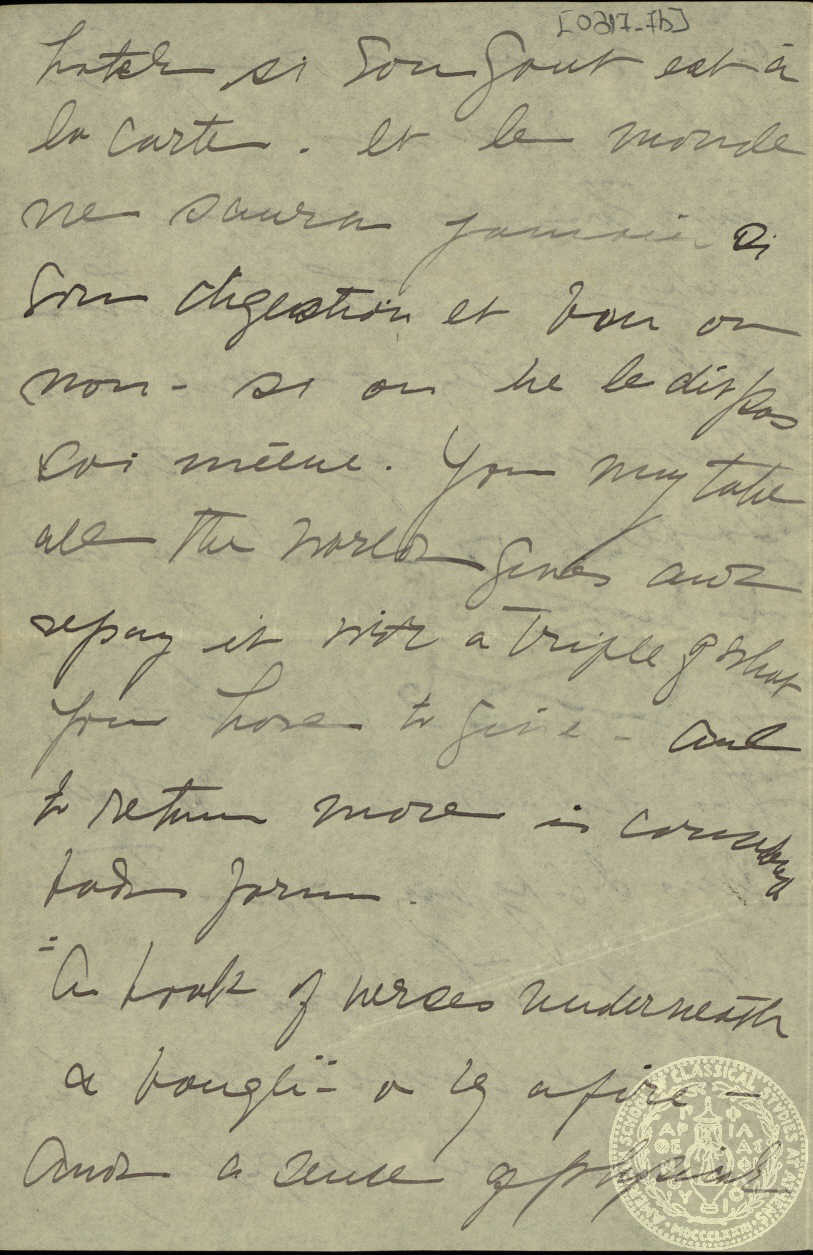 [0317-7b]
hotel si son gout est à
la carte. et le monde
ne saura jamais si
son digestion et bon ou
non - si on ne le dit pas
soi même. You may take
all the world gives and
repay it with a triple of what
you have to give - and
to return more is considered
bad form.
"A book of verses underneath
a bough" - or by a fire -
And a sense of physical
SCHOOL OF CLASSICAL STUDIES AT ATHENS
MDCCCLXXXI